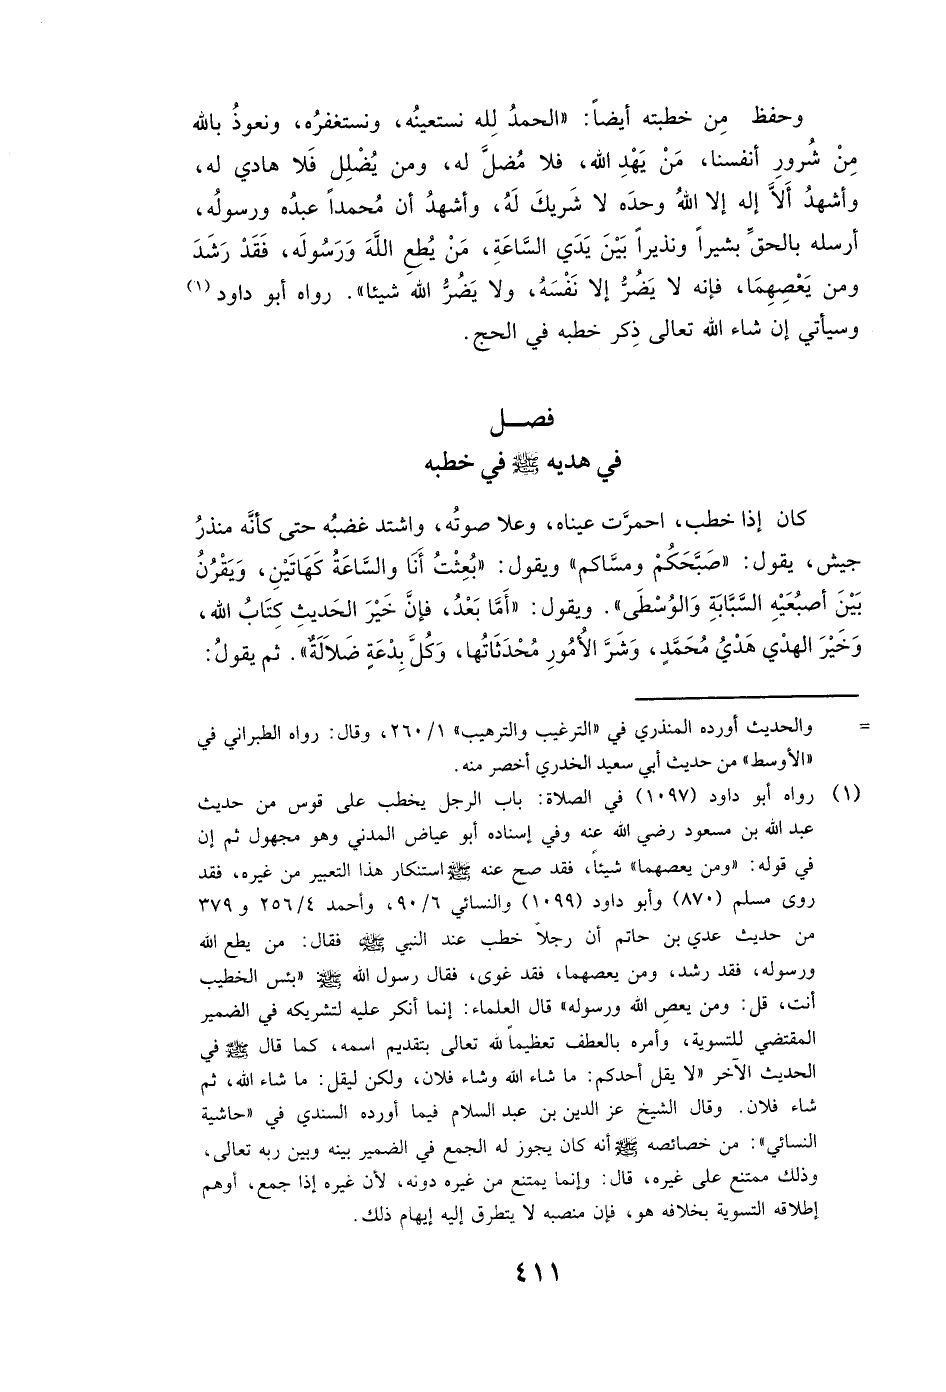 وحفظ مِن خطبته أيضاً: «الحمدُ لِله نستعينُه، ونستغفرُه، ونعوذُ بالله
مِنْ شُرورِ أنفسنا، مَنْ يَهْدِ الله، فلا مُضلَّ له، ومن يُضْلِل فَلا هادي له،
وأشهدُ ألاَّ إله إلا اللهُ وحدَه لا شَريكَ لَهُ، وأشهدُ أن مُحمداً عبدُه ورسولُه،
أرسله بالحقِّ بشيراً ونذيراً بَيْنَ يَدَي السَّاعَةِ، مَنْ يُطعِ اللَّهَ وَرَسُولَه، فَقَدْ رَشَدَ
ومن يَعْصِهِمَا، فإنه لا يَضُرُّ إلا نَفْسَهُ، ولا يَضُرُّ اللهَ شيئا». رواه أبو داود (١)
وسيأتي إن شاء الله تعالى ذِكر خطبه في الحج.
فصــل
في هديه ﷺ في خطبه
كان إذا خطب، احمرَّت عيناه، وعلا صوتُه، واشتد غضبُه حتى كأنَّه منذرُ
جيش، يقول: «صَبَّحَكُمْ ومسَّاكم» ويقول: «بُعِثْتُ أَنَا والسَّاعَةُ كَهَاتَيْنِ، وَيَقْرُنُ
بَيْنَ أصبُعَيْهِ السَّبَّابَةِ وَالوُسْطَى». ويقول: «أَمَّا بَعْدُ، فإنَّ خَيْرَ الحَديثِ كِتَابُ الله،
وَخَيْرَ الهدْي هَدْيُ مُحَمَّدٍ، وَشَرَّ الأُمُورِ مُحْدَثَاتُها، وَكُلَّ بِدْعَةٍ ضَلالَةٌ». ثم يقولُ:
= والحديث أورده المنذري في «الترغيب والترهيب» ٢٦٠/١، وقال: رواه الطبراني في
«الأوسط» من حديث أبي سعيد الخدري أخصر منه.
(١) رواه أبو داود (١٠٩٧) في الصلاة: باب الرجل يخطب على قوس من حديث
عبد الله بن مسعود رضي الله عنه وفي إسناده أبو عياض المدني وهو مجهول ثم إن
في قوله: «ومن يعصهما» شيئاً، فقد صح عنه ﷺ استنكار هذا التعبير من غيره، فقد
روى مسلم (٨٧٠) وأبو داود (١٠٩٩) والنسائي ٩٠/٦، وأحمد ٢٥٦/٤ و ٣٧٩
من حديث عدي بن حاتم أن رجلاً خطب عند النبي ﷺ فقال: من يطع الله
ورسوله، فقد رشد، ومن يعصهما، فقد غوى، فقال رسول الله ﷺ «بئس الخطيب
أنت، قل: ومن يعصِ الله ورسوله» قال العلماء: إنما أنكر عليه لتشريكه في الضمير
المقتضي للتسوية، وأمره بالعطف تعظيماً لله تعالى بتقديم اسمه، كما قال ﷺ في
الحديث الآخر «لا يقل أحدكم: ما شاء الله وشاء فلان، ولكن ليقل: ما شاء الله، ثم
شاء فلان. وقال الشيخ عز الدين بن عبد السلام فيما أورده السندي في «حاشية
النسائي»: من خصائصه ﷺ أنه كان يجوز له الجمع في الضمير بينه وبين ربه تعالى،
وذلك ممتنع على غيره، قال: وإنما يمتنع من غيره دونه، لأن غيره إذا جمع، أوهم
إطلاقه التسوية بخلافه هو، فإن منصبه لا يتطرق إليه إيهام ذلك.
٤١١